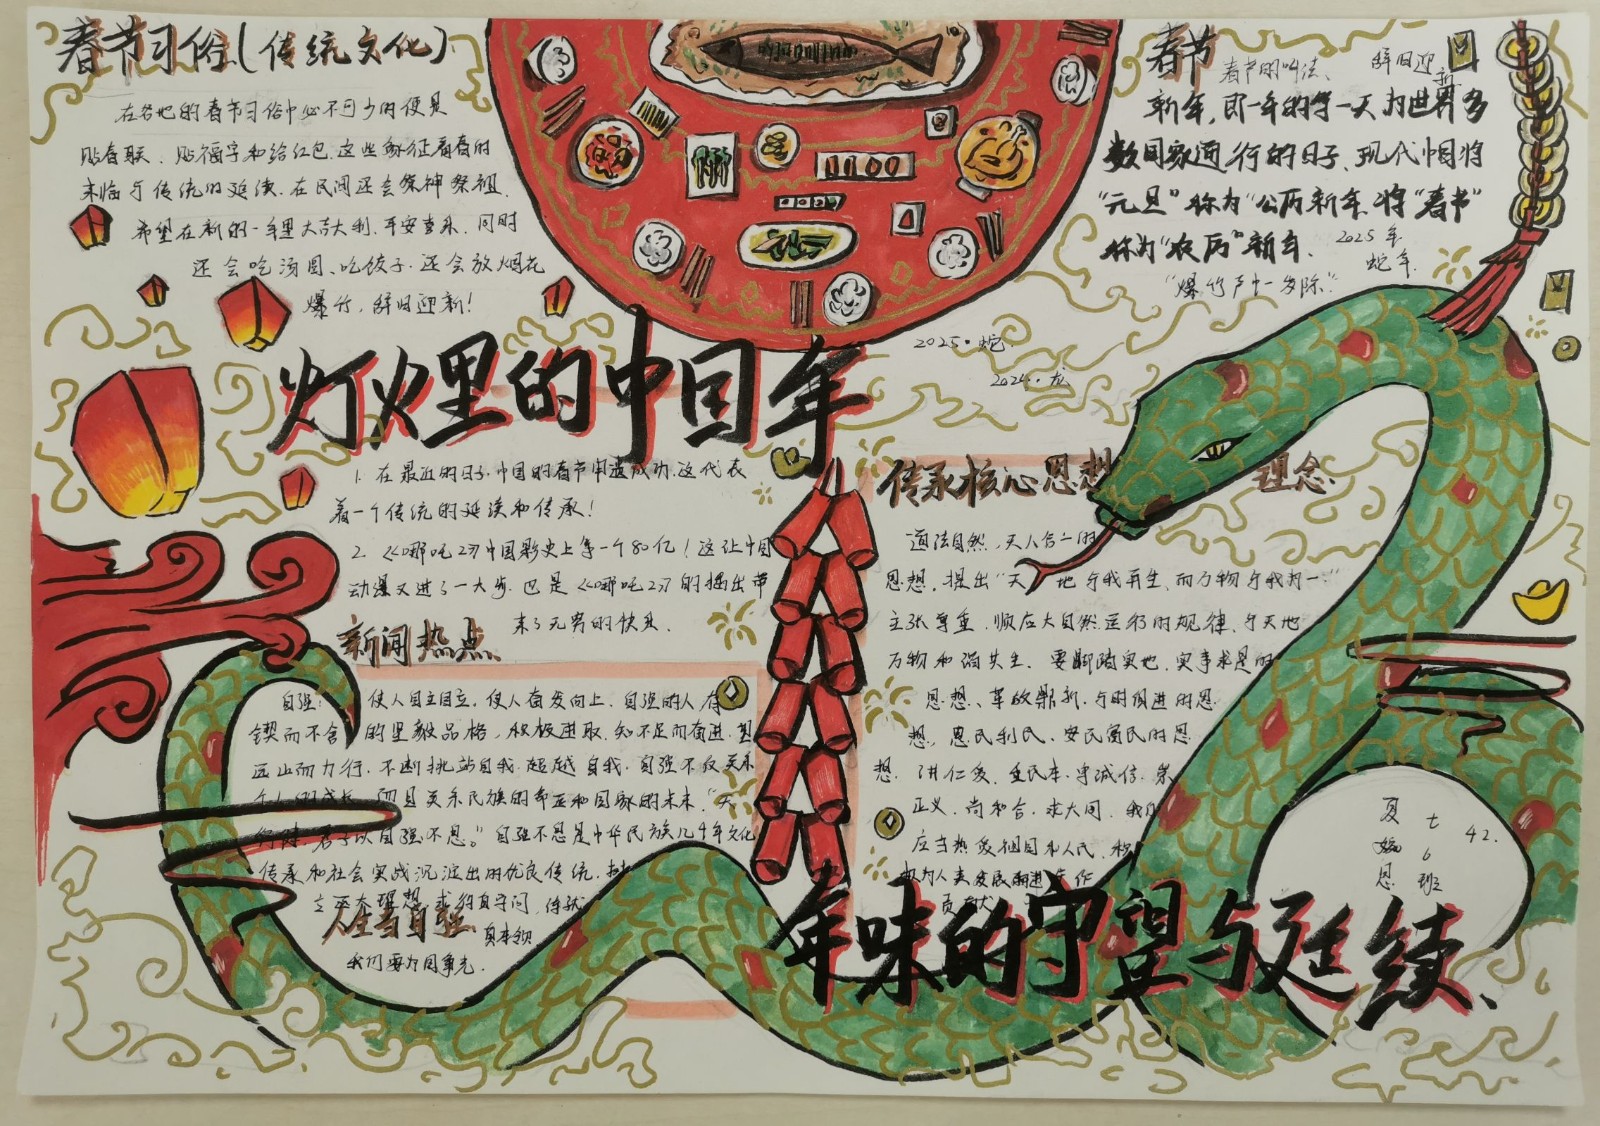 春节习俗(传统文化)
在各地的春节习俗中必不可少的便是
贴春联、贴福字和给红包.这些象征着春的
来临与传统的延续.在民间还会祭神祭祖.
希望在新的一年里大吉大利、平安喜乐.同时
还会吃汤圆、吃饺子.还会放烟花
爆竹,辞旧迎新!
春节
春节的叫法、
辞旧迎新
新年,即一年的第一天为世界多
数国家通行的日子、现代中国将
"元旦"称为"公历新年,将"春节"
称为"农历"新年.
2025年
蛇年.
"爆竹声中一岁除."
灯火里的中国年
2025·蛇.
2024·龙
1.在最近的日子.中国的春节申遗成功.这代表
着一个传统的延续和传承!
2.《哪吒2》中国影史上第一个80亿!这让中国
动漫又进了一大步.也是《哪吒2》的播出带
来了无穷的快乐.
新闻热点
自强: 使人自主自立.使人奋发向上.自强的人,有
锲而不舍的坚毅品格,积极进取.知不足而奋进.望
远山而力行.不断挑战自我.超越自我.自强不仅关系
个人的成长.而且关系民族的命运和国家的未来."天
行健.君子以自强不息."自强不息是中华民族几千年文化
传承和社会实践沉淀出的优良传统.
人生当自强
我们要为国争光.
传承核心思想理念.
道法自然,天人合一的
思想.提出"天地与我并生,而万物与我为一."
主张尊重.顺应大自然运行的规律,与天地
万物和谐共生.要脚踏实地,实事求是的
思想、革故鼎新.与时俱进的思
想,惠民利民、安民富民的思
想.讲仁爱.重民本.守诚信.崇
正义.尚和合.求大同.我们
应当热爱祖国和人民,积
极为人类发展
贡献
夏媛恩
七6班
42.
年味的守望与延续、